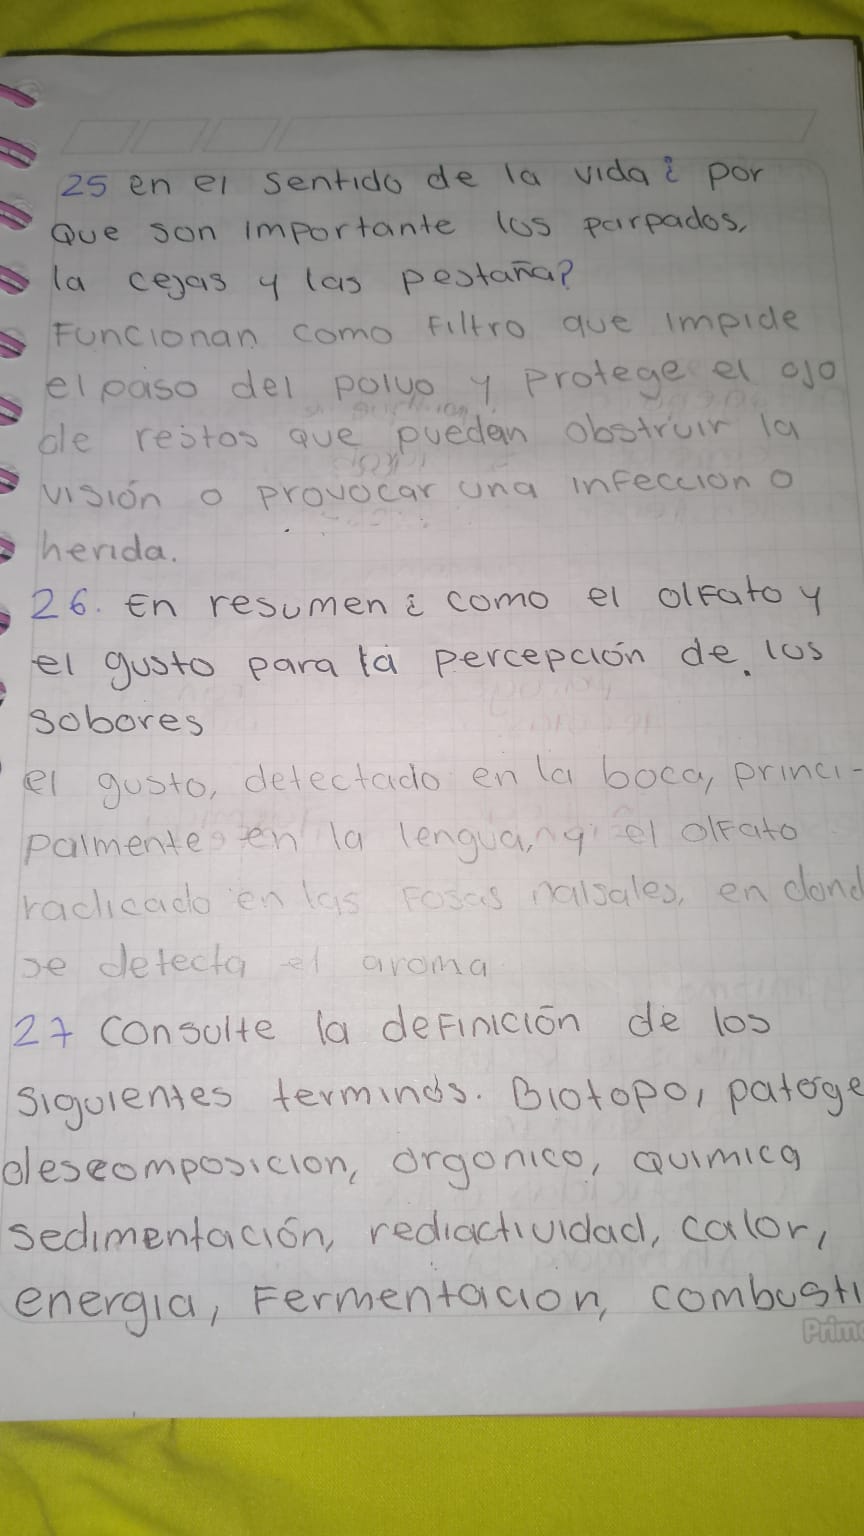 25 en el sentido de la vida ¿ por
Que son importante los parpados,
la cejas y las pestaña?
Funcionan como Filtro que impide
el paso del polvo y protege el ojo
de restos que puedan obstruir la
visión o provocar una infeccion o
herida.
26. En resumen ¿ como el olfato y
el gusto para la percepción de los
sobores
el gusto, detectado en la boca, princi-
palmente en la lengua, y el olfato
radicado en las Fosas nalsales, en dond
se detecta el aroma
27 Consulte la definición de los
siguientes terminos. Biotopo, patoge
descomposicion, orgonico, Quimica
sedimentación, rediactividad, calor,
energia, Fermentacion, combusti
Prim